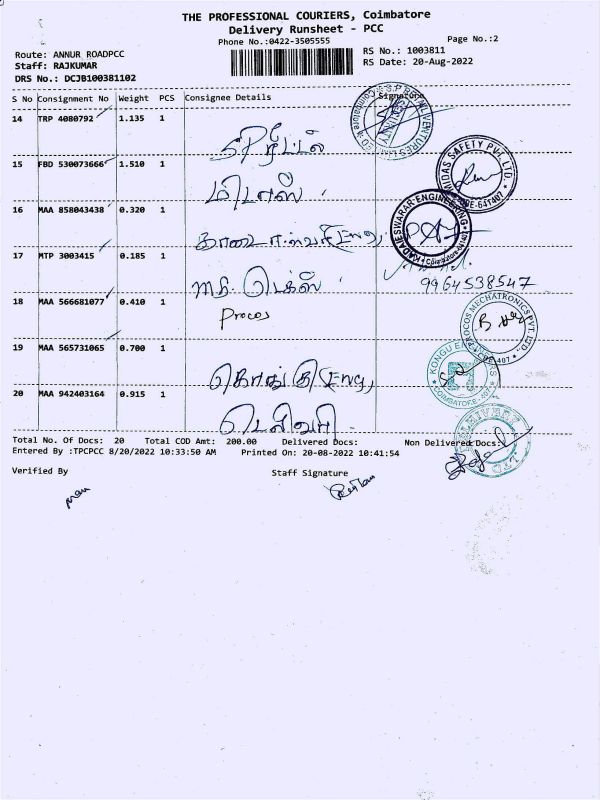 THE PROFESSIONAL COURIERS, Coimbatore
Delivery Runsheet - PCC
Phone No.:0422-3505555
Page No.:2
Route: ANNUR ROADPCC
RS No.: 1003811
Staff: RAJKUMAR
RS Date: 20-Aug-2022
DRS No.: DCJB100381102
S No Consignment No Weight PCS Consignee Details Signature
14 TRP 4080792 1.135 1
15 FBD 530073666 1.510 1
மிடாஸ்
16 MAA 858043438 0.320 1
17 MTP 3003415 0.185 1
9964538547
18 MAA 566681077 0.410 1
Procos
19 MAA 565731065 0.700 1
கொங்கு Eng,
20 MAA 942403164 0.915 1
டெலிவரி
Total No. Of Docs: 20 Total COD Amt: 200.00 Delivered Docs: Non Delivered Docs:
Entered By :TPCPCC 8/20/2022 10:33:50 AM Printed On: 20-08-2022 10:41:54
Verified By Staff Signature